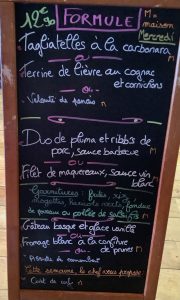 12€90 FORMULE M = maison
Mercredi
Tagliatelles à la carbonara
ou m
Terrine de lièvre au cognac
et cornichons
ou
Velouté de panais m
Duo de pluma et ribb's de
porc, sauce barbecue m
ou
Filet de maquereaux, sauce vin
blanc m
Garnitures : frites, riz,
haricots verts, fondue
de poireau ou poêlée de m
Gâteau basque et glace vanille
ou m
Fromage blanc à la confiture
ou de prunes m
Cette semaine, le chef vous propose :